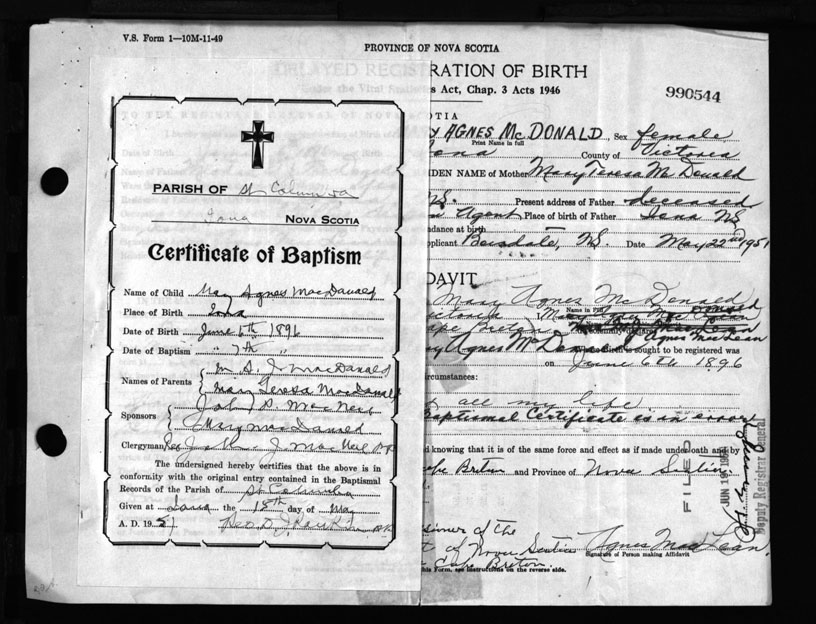 V.S. Form 1—10M-11-49
PROVINCE OF NOVA SCOTIA
RATION OF BIRTH
s Act, Chap. 3 Acts 1946
990544
OTIA
AGNES McDONALD, Sex female
Print Name in full
Iona County of Victoria
IDEN NAME of Mother Mary Teresa McDonald
N.S. Present address of Father deceased
Agent Place of birth of Father Iona NS
ndance at birth
pplicant Beisdale, N.S. Date May 22nd 1951
DAVIT
Mary Agnes McDonald
Name in Full
Victoria
Cape Breton
Agnes MacLean
Agnes McDonald birth is sought to be registered was
on June 6th 1896
circumstances:
all my life
Baptismal Certificate is in error
d knowing that it is of the same force and effect as if made under oath and by
Cape Breton and Province of Nova Scotia.
FILED
JUN 19 1951
Deputy Registrar General
ssioner of the
of Nova Scotia
Cape Breton.
Agnes MacLean
Signature of Person making Affidavit
his Form, see instructions on the reverse side.
PARISH OF St Columba
Iona NOVA SCOTIA
Certificate of Baptism
Name of Child May Agnes MacDonald
Place of Birth Iona
Date of Birth June 6th 1896
Date of Baptism " 7th "
Names of Parents M S. J MacDonald
Mary Teresa MacDonald
Sponsors John P. MacNeil
Mary MacDonald
Clergyman Rev. J. MacNeil P.P.
The undersigned hereby certifies that the above is in
conformity with the original entry contained in the Baptismal
Records of the Parish of St Columba
Given at Iona the 18th day of May
A. D. 1951 Rev. D. J. Rankin P.P.